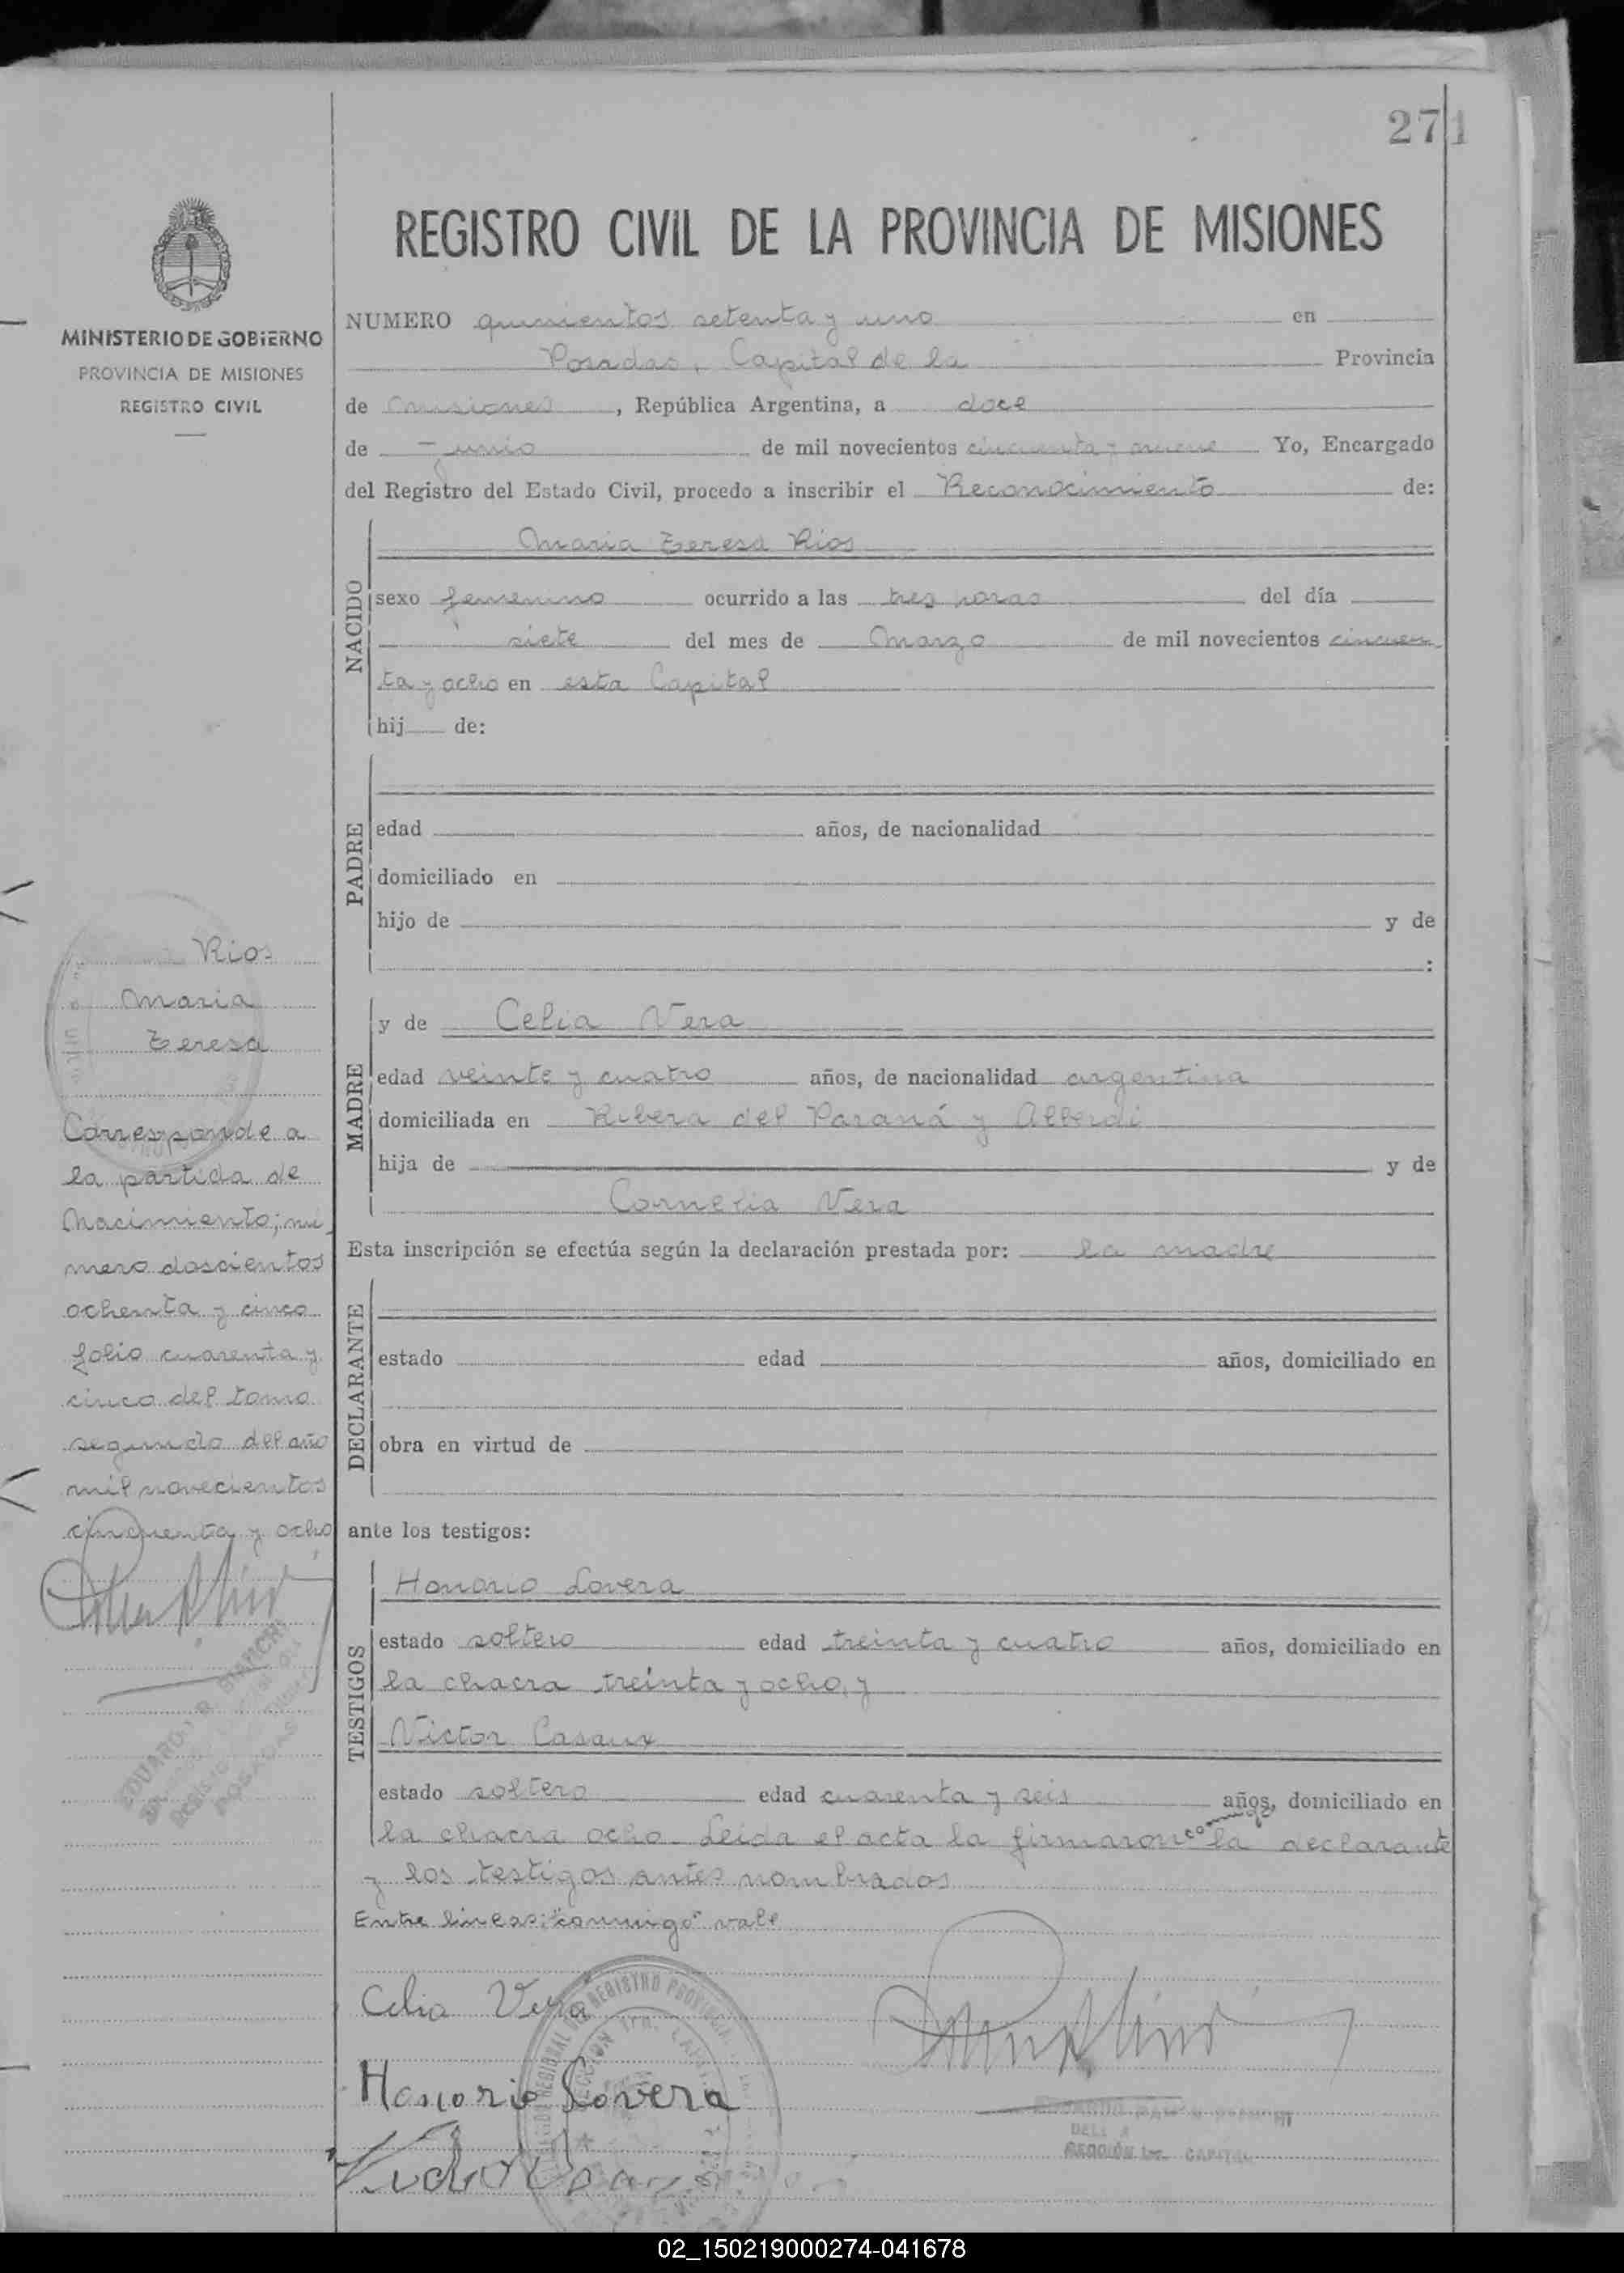 271
REGISTRO CIVIL DE LA PROVINCIA DE MISIONES
MINISTERIO DE GOBIERNO
PROVINCIA DE MISIONES
REGISTRO CIVIL
NUMERO quinientos setenta y uno en
Posadas, Capital de la Provincia
de Misiones, República Argentina, a doce
de Junio de mil novecientos cincuenta y nueve Yo, Encargado
del Registro del Estado Civil, procedo a inscribir el Reconocimiento de:
NACIDO
Maria Teresa Rios
sexo femenino ocurrido a las tres horas del día
siete del mes de Marzo de mil novecientos cincuen
ta y ocho en esta Capital
hij de:
PADRE
edad años, de nacionalidad
domiciliado en
hijo de y de
:
MADRE
y de Celia Vera
edad veinte y cuatro años, de nacionalidad argentina
domiciliada en Ribera del Paraná y Alberdi
hija de y de
Cornelia Vera
Esta inscripción se efectúa según la declaración prestada por: la madre
DECLARANTE
estado edad años, domiciliado en
obra en virtud de
ante los testigos:
TESTIGOS
Honorio Lovera
estado soltero edad treinta y cuatro años, domiciliado en
la chacra treinta y ocho, y
Victor Casaux
estado soltero edad cuarenta y seis años, domiciliado en
la chacra ocho. Leida el acta la firmaron conmigo la declarante
y los testigos antes nombrados
Entre lineas: "conmigo" vale
Celia Vera
Honorio Lovera
Rios
Maria
Teresa
Corresponde a
la partida de
Nacimiento; nú
mero doscientos
ochenta y cinco
folio cuarenta y
cinco del tomo
segundo del año
mil novecientos
cincuenta y ocho
SECCIÓN 1ra. CAPITAL
02_150219000274-041678